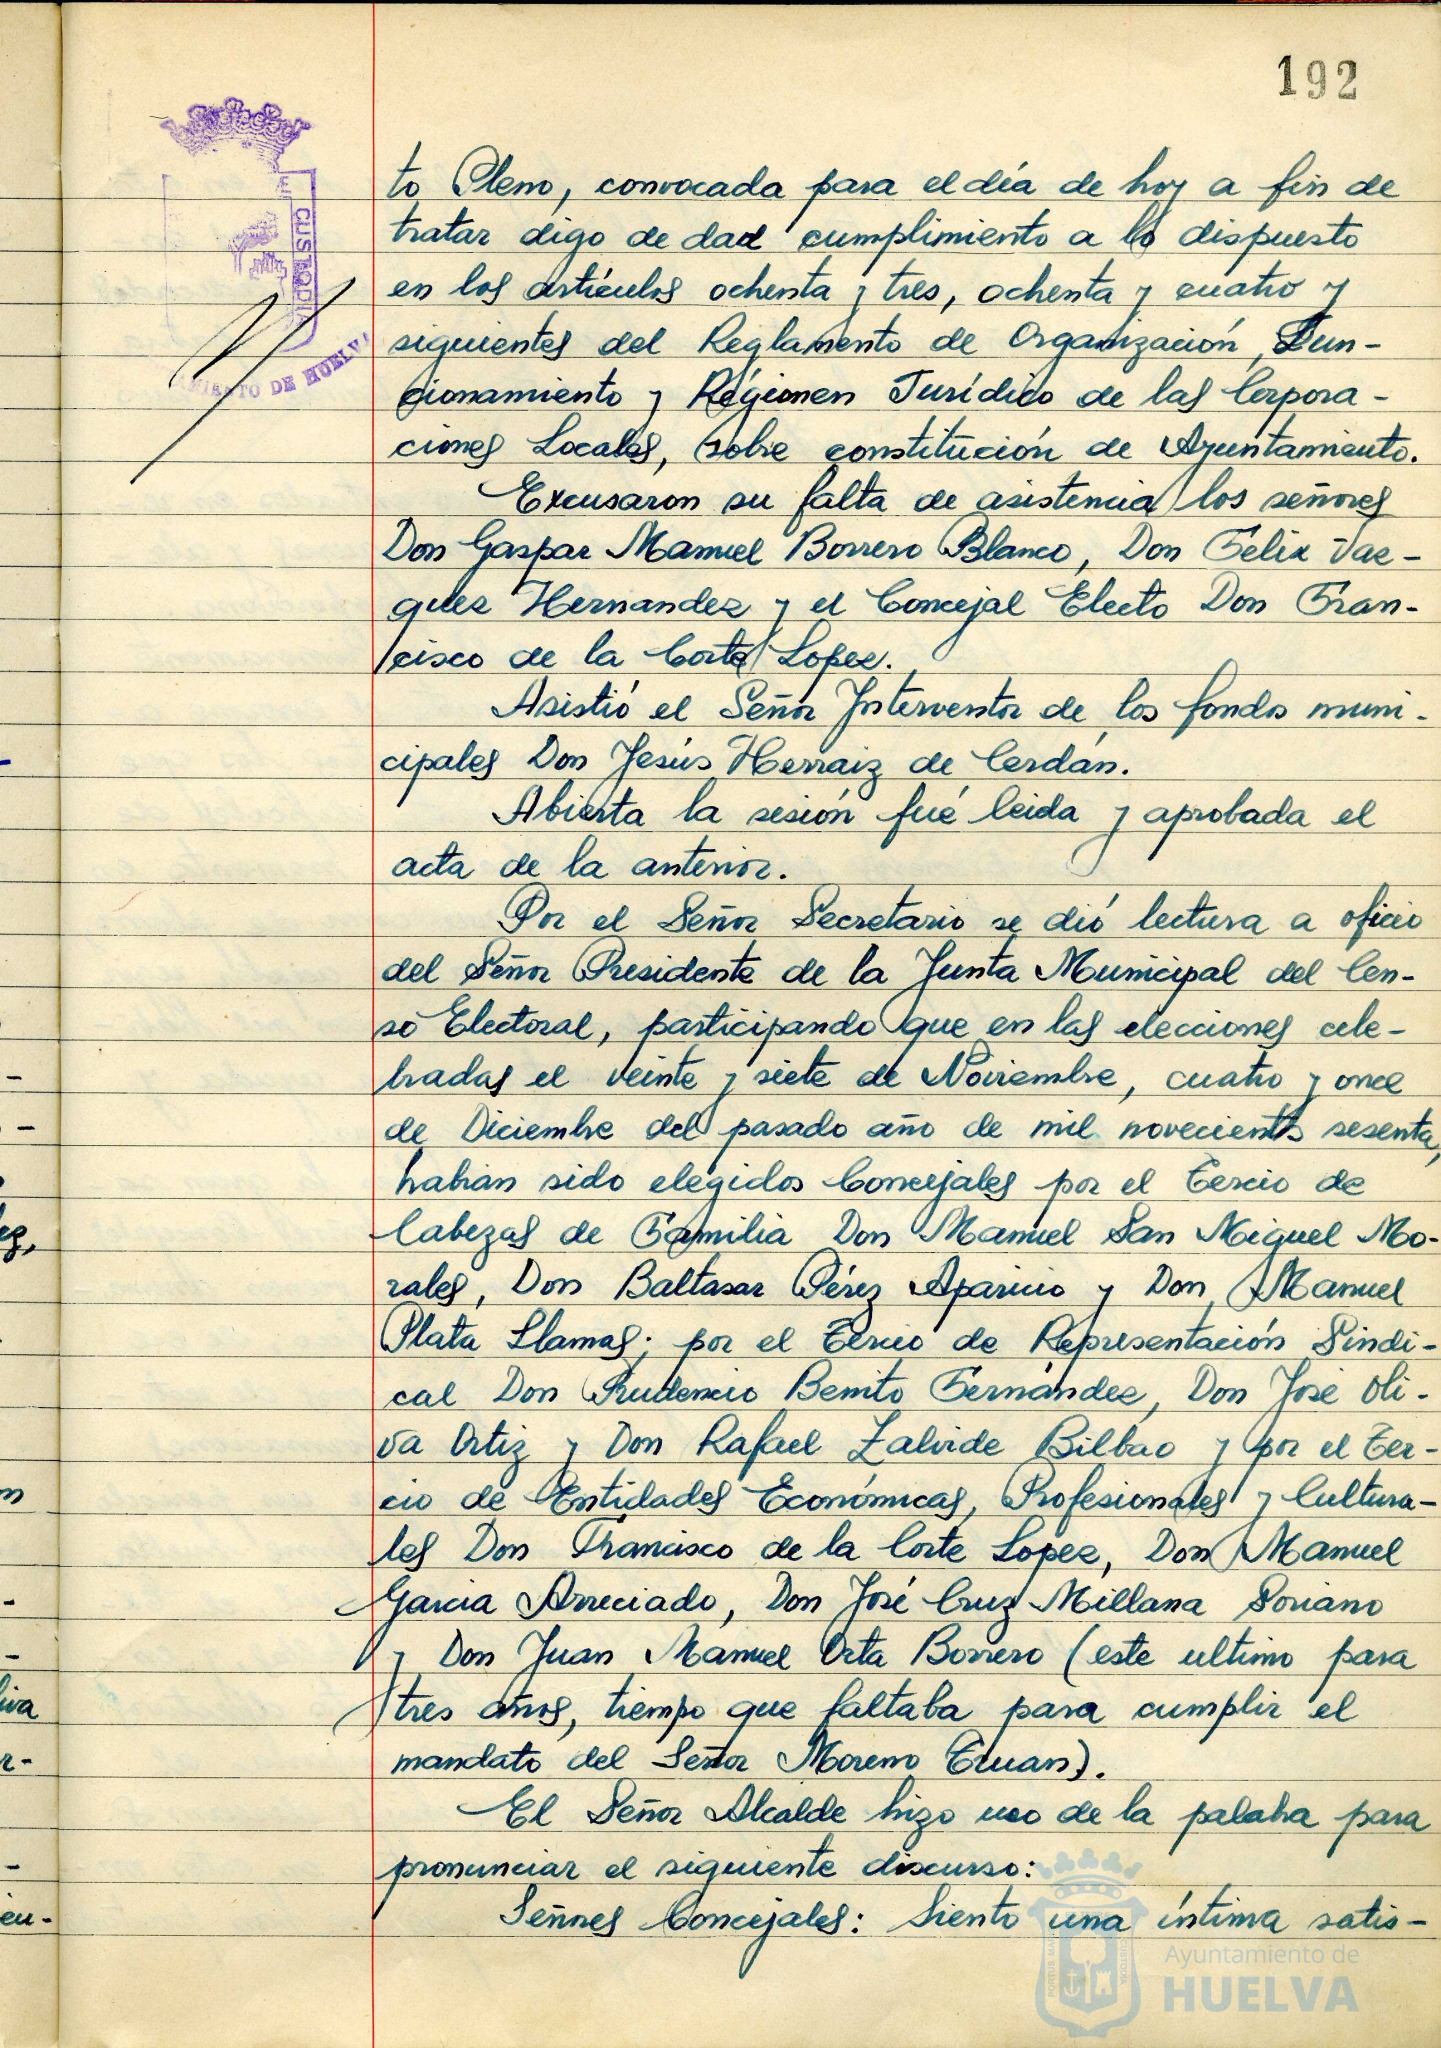 192
to Pleno, convocada para el día de hoy a fin de
tratar digo de dad cumplimiento a lo dispuesto
en los artículos ochenta y tres, ochenta y cuatro y
siguientes del Reglamento de Organización, Fun-
cionamiento y Régimen Jurídico de las Corpora-
ciones Locales, sobre constitución de Ayuntamiento.
Excusaron su falta de asistencia los señores
Don Gaspar Manuel Borrero Blanco, Don Felix Vaz-
quez Hernandez y el Concejal Electo Don Fran-
cisco de la Corte Lopez.
Asistió el Señor Interventor de los fondos muni-
cipales Don Jesús Herraiz de Cerdán.
Abierta la sesión fué leida y aprobada el
acta de la anterior.
Por el Señor Secretario se dió lectura a oficio
del Señor Presidente de la Junta Municipal del Cen-
so Electoral, participando que en las elecciones cele-
bradas el veinte y siete de Noviembre, cuatro y once
de Diciembre del pasado año de mil novecientos sesenta,
habian sido elegidos Concejales por el Tercio de
Cabezas de Familia Don Manuel San Miguel Mo-
rales, Don Baltasar Pérez Aparicio y Don Manuel
Plata Llamas; por el Tercio de Representación Sindi-
cal Don Prudencio Benito Fernández, Don José Oli-
va Ortiz y Don Rafael Zalvide Bilbao y por el Ter-
cio de Entidades Económicas, Profesionales y Cultura-
les Don Francisco de la Corte Lopez, Don Manuel
Garcia Arreciado, Don José Cruz Millana Soriano
y Don Juan Manuel Orta Borrero (este ultimo para
tres años, tiempo que faltaba para cumplir el
mandato del Señor Moreno Truan).
El Señor Alcalde hizo uso de la palabra para
pronunciar el siguiente discurso:
Señores Concejales: Siento una íntima satis-
CUSTODIA
AMIENTO DE HUELVA
Ayuntamiento de
HUELVA